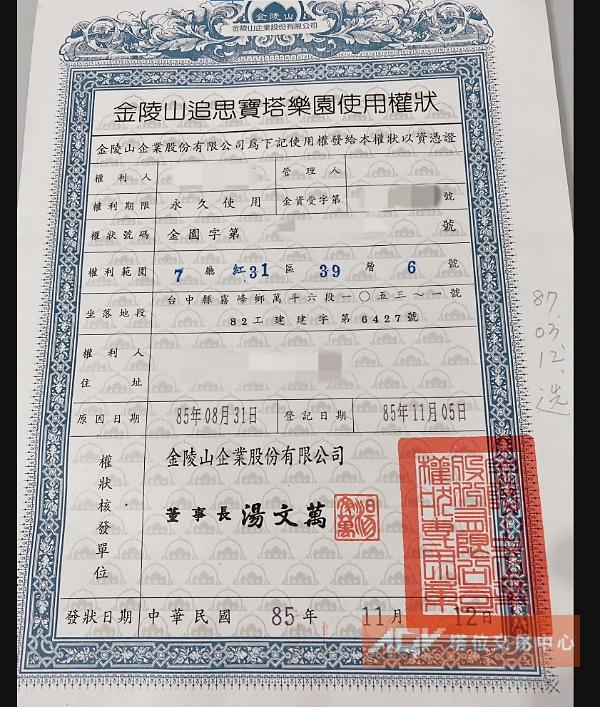 金陵山
金陵山企業股份有限公司
金陵山追思寶塔樂園使用權狀
金陵山企業股份有限公司為下記使用權發給本權狀以資憑證
權利人 管理人
權利期限 永久使用 金資受字第 號
權狀號碼 金園字第 號
權利範圍 7 廳 紅31 區 39 層 6 號
坐落地段 台中縣霧峰鄉萬斗六段一〇五三~一號
82工建建字第6427號
權利人
住址
原因日期 85年08月31日 登記日期 85年11月05日
權狀核發單位
金陵山企業股份有限公司
董事長 湯文萬
發狀日期 中華民國 85年 11月 12日
87.03.12.選
塔位交易中心